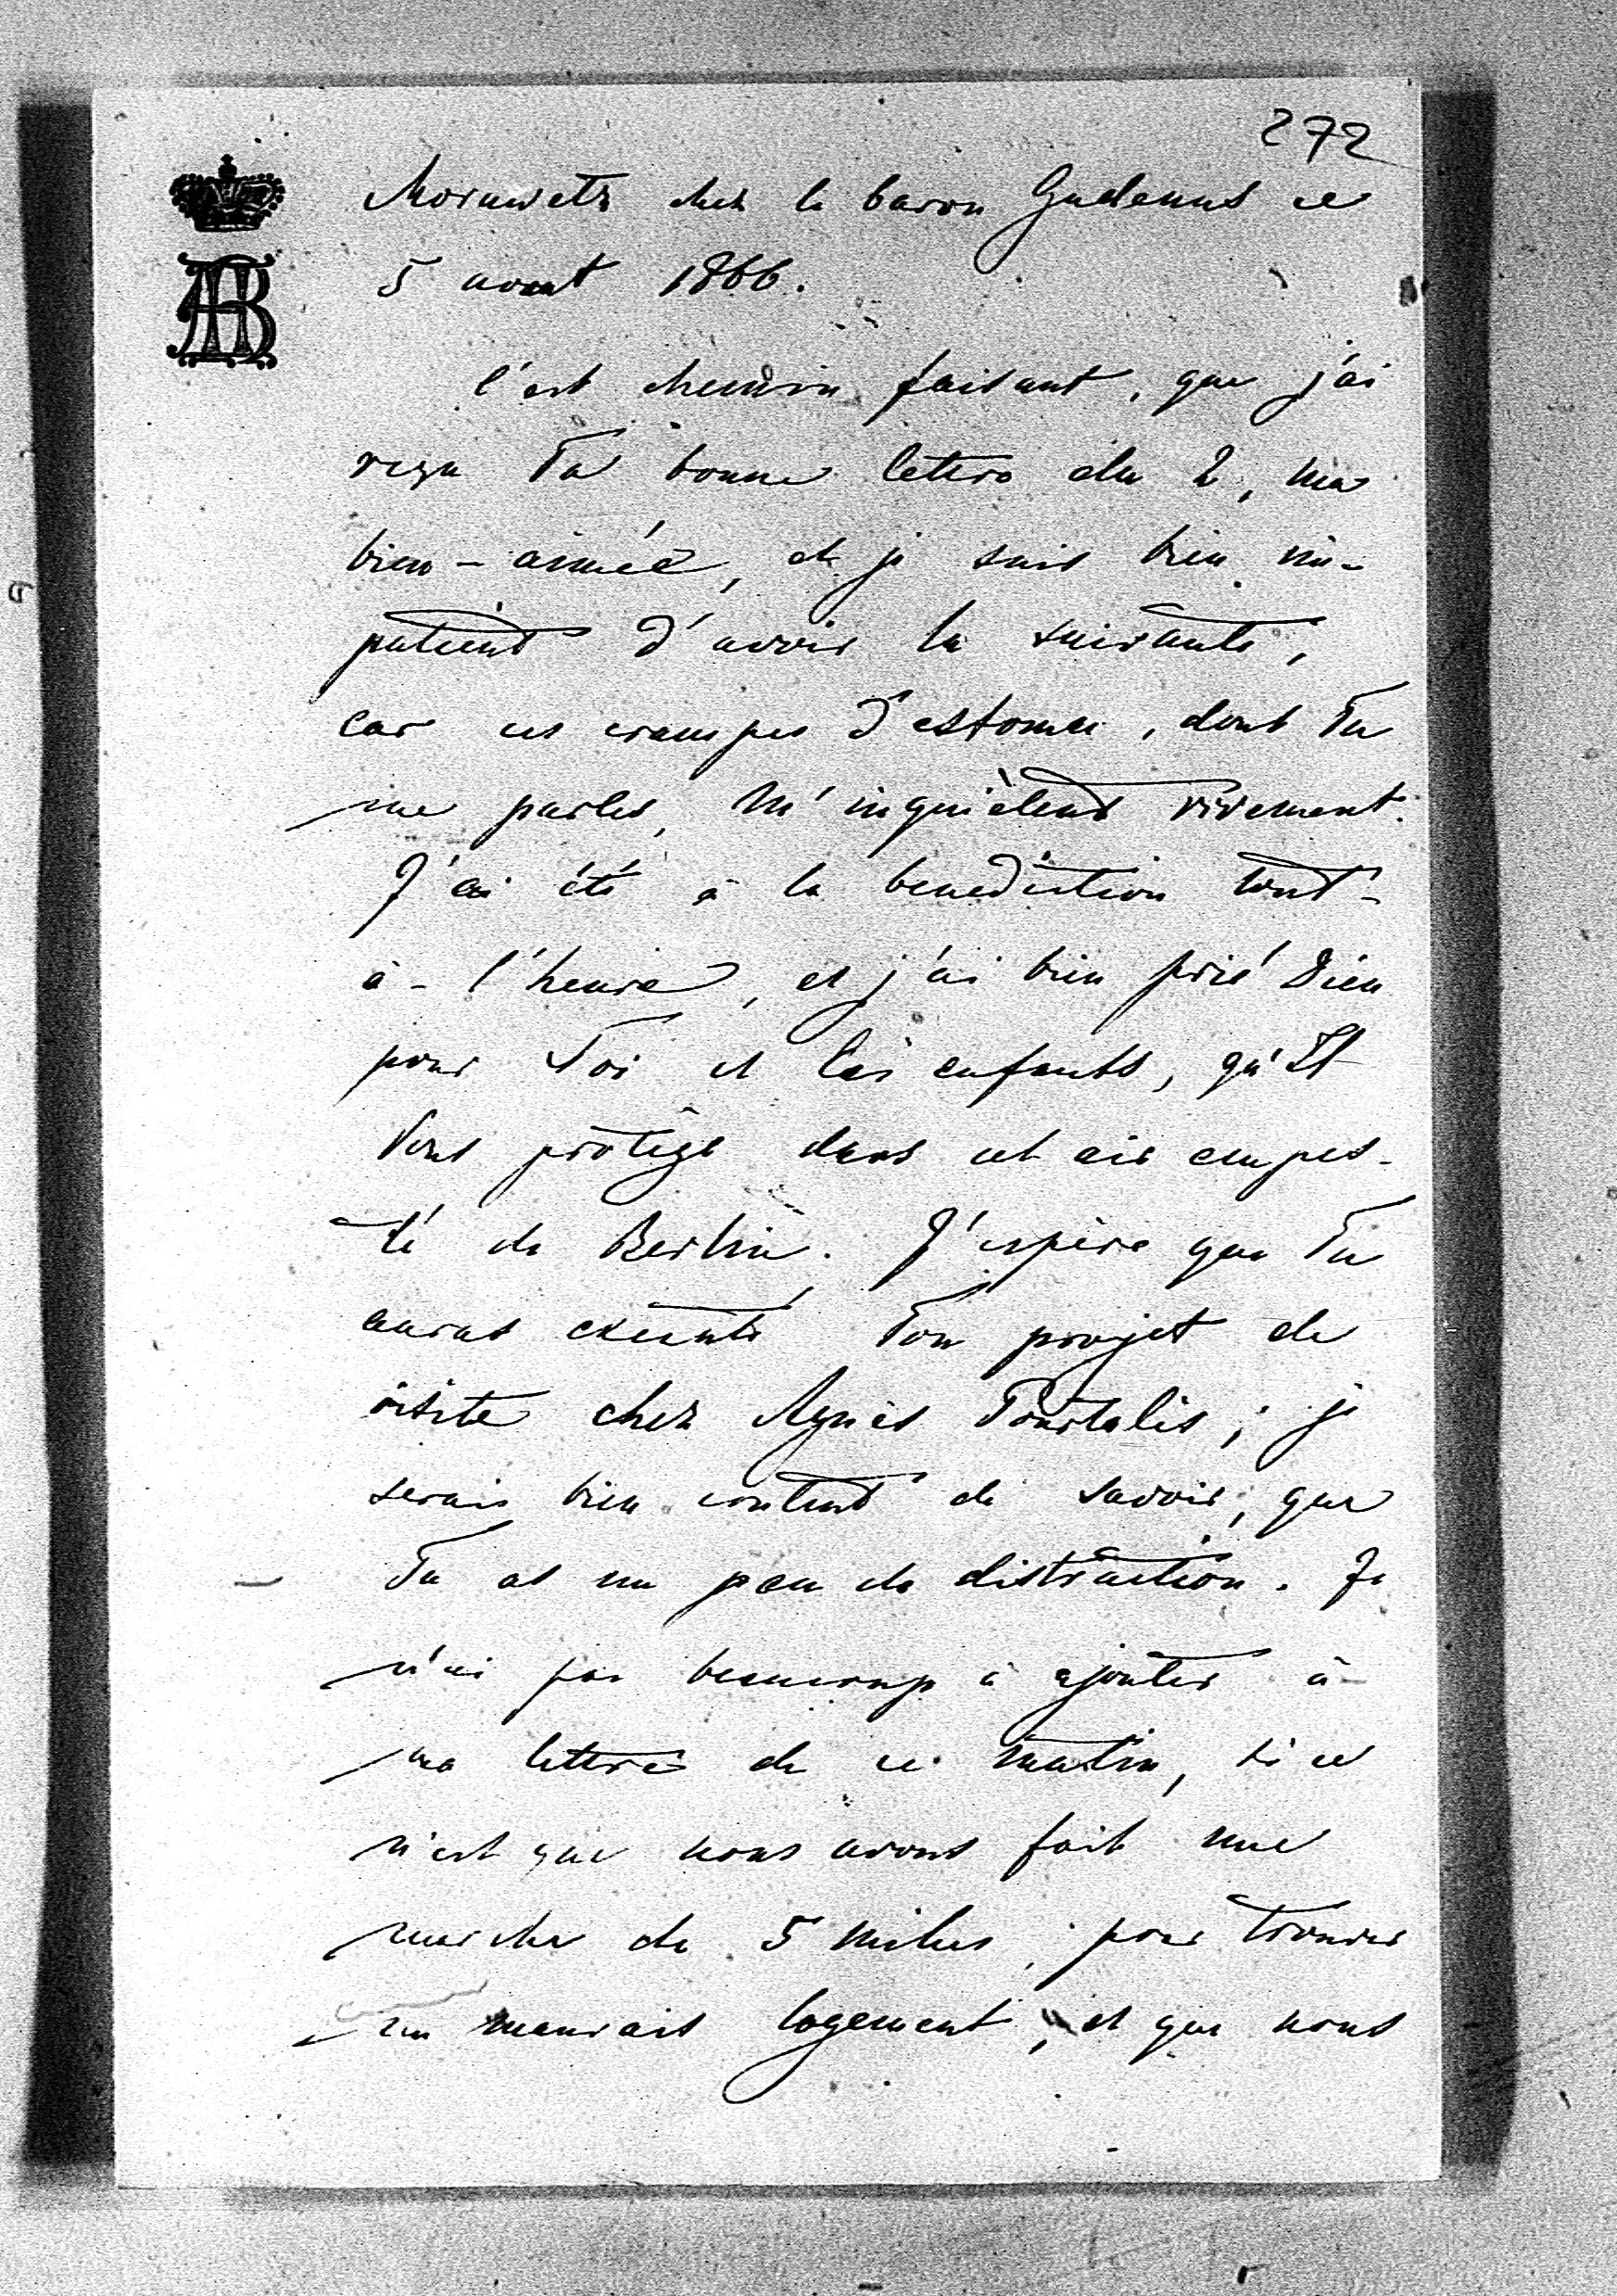 272
Morawetz chez le baron Gudenus ce
5 aout 1866.
C'est chemin faisant, que j'ai
reçu Ta bonne lettre du 2, ma
bien-aimée, et je suis bien im-
patient d'avoir la suivante,
car ces crampes d'estomac, dont Tu
me parles, m'inquiètent vivement.
J'ai été à la benediction tout-
à-l'heure, et j'ai bien prié Dieu
pour Toi et les enfants, qu'Il
Vous protège dans cet air empes-
té de Berlin. J'espère que Tu
auras exécuté Ton projet de
visite chez Agnès Pourtalès; je
serais bien content de savoir, que
Tu as un peu de distraction. Je
n'ai pas beaucoup à ajouter à
ma lettre de ce matin, si ce
n'est que nous avons fait une
marche de 5 milles, pour trouver
un mauvais logement, et que nous